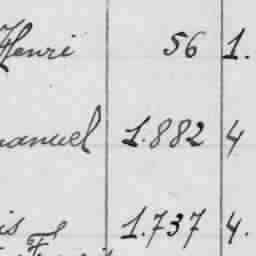 Henri 56 1.
manuel 1.882 4
is 1.737 4.